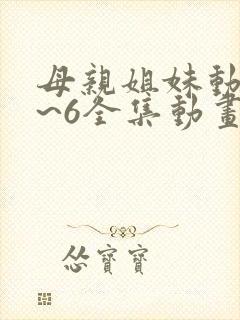 母親姐妹動
~6全集動畫
怂寶寶